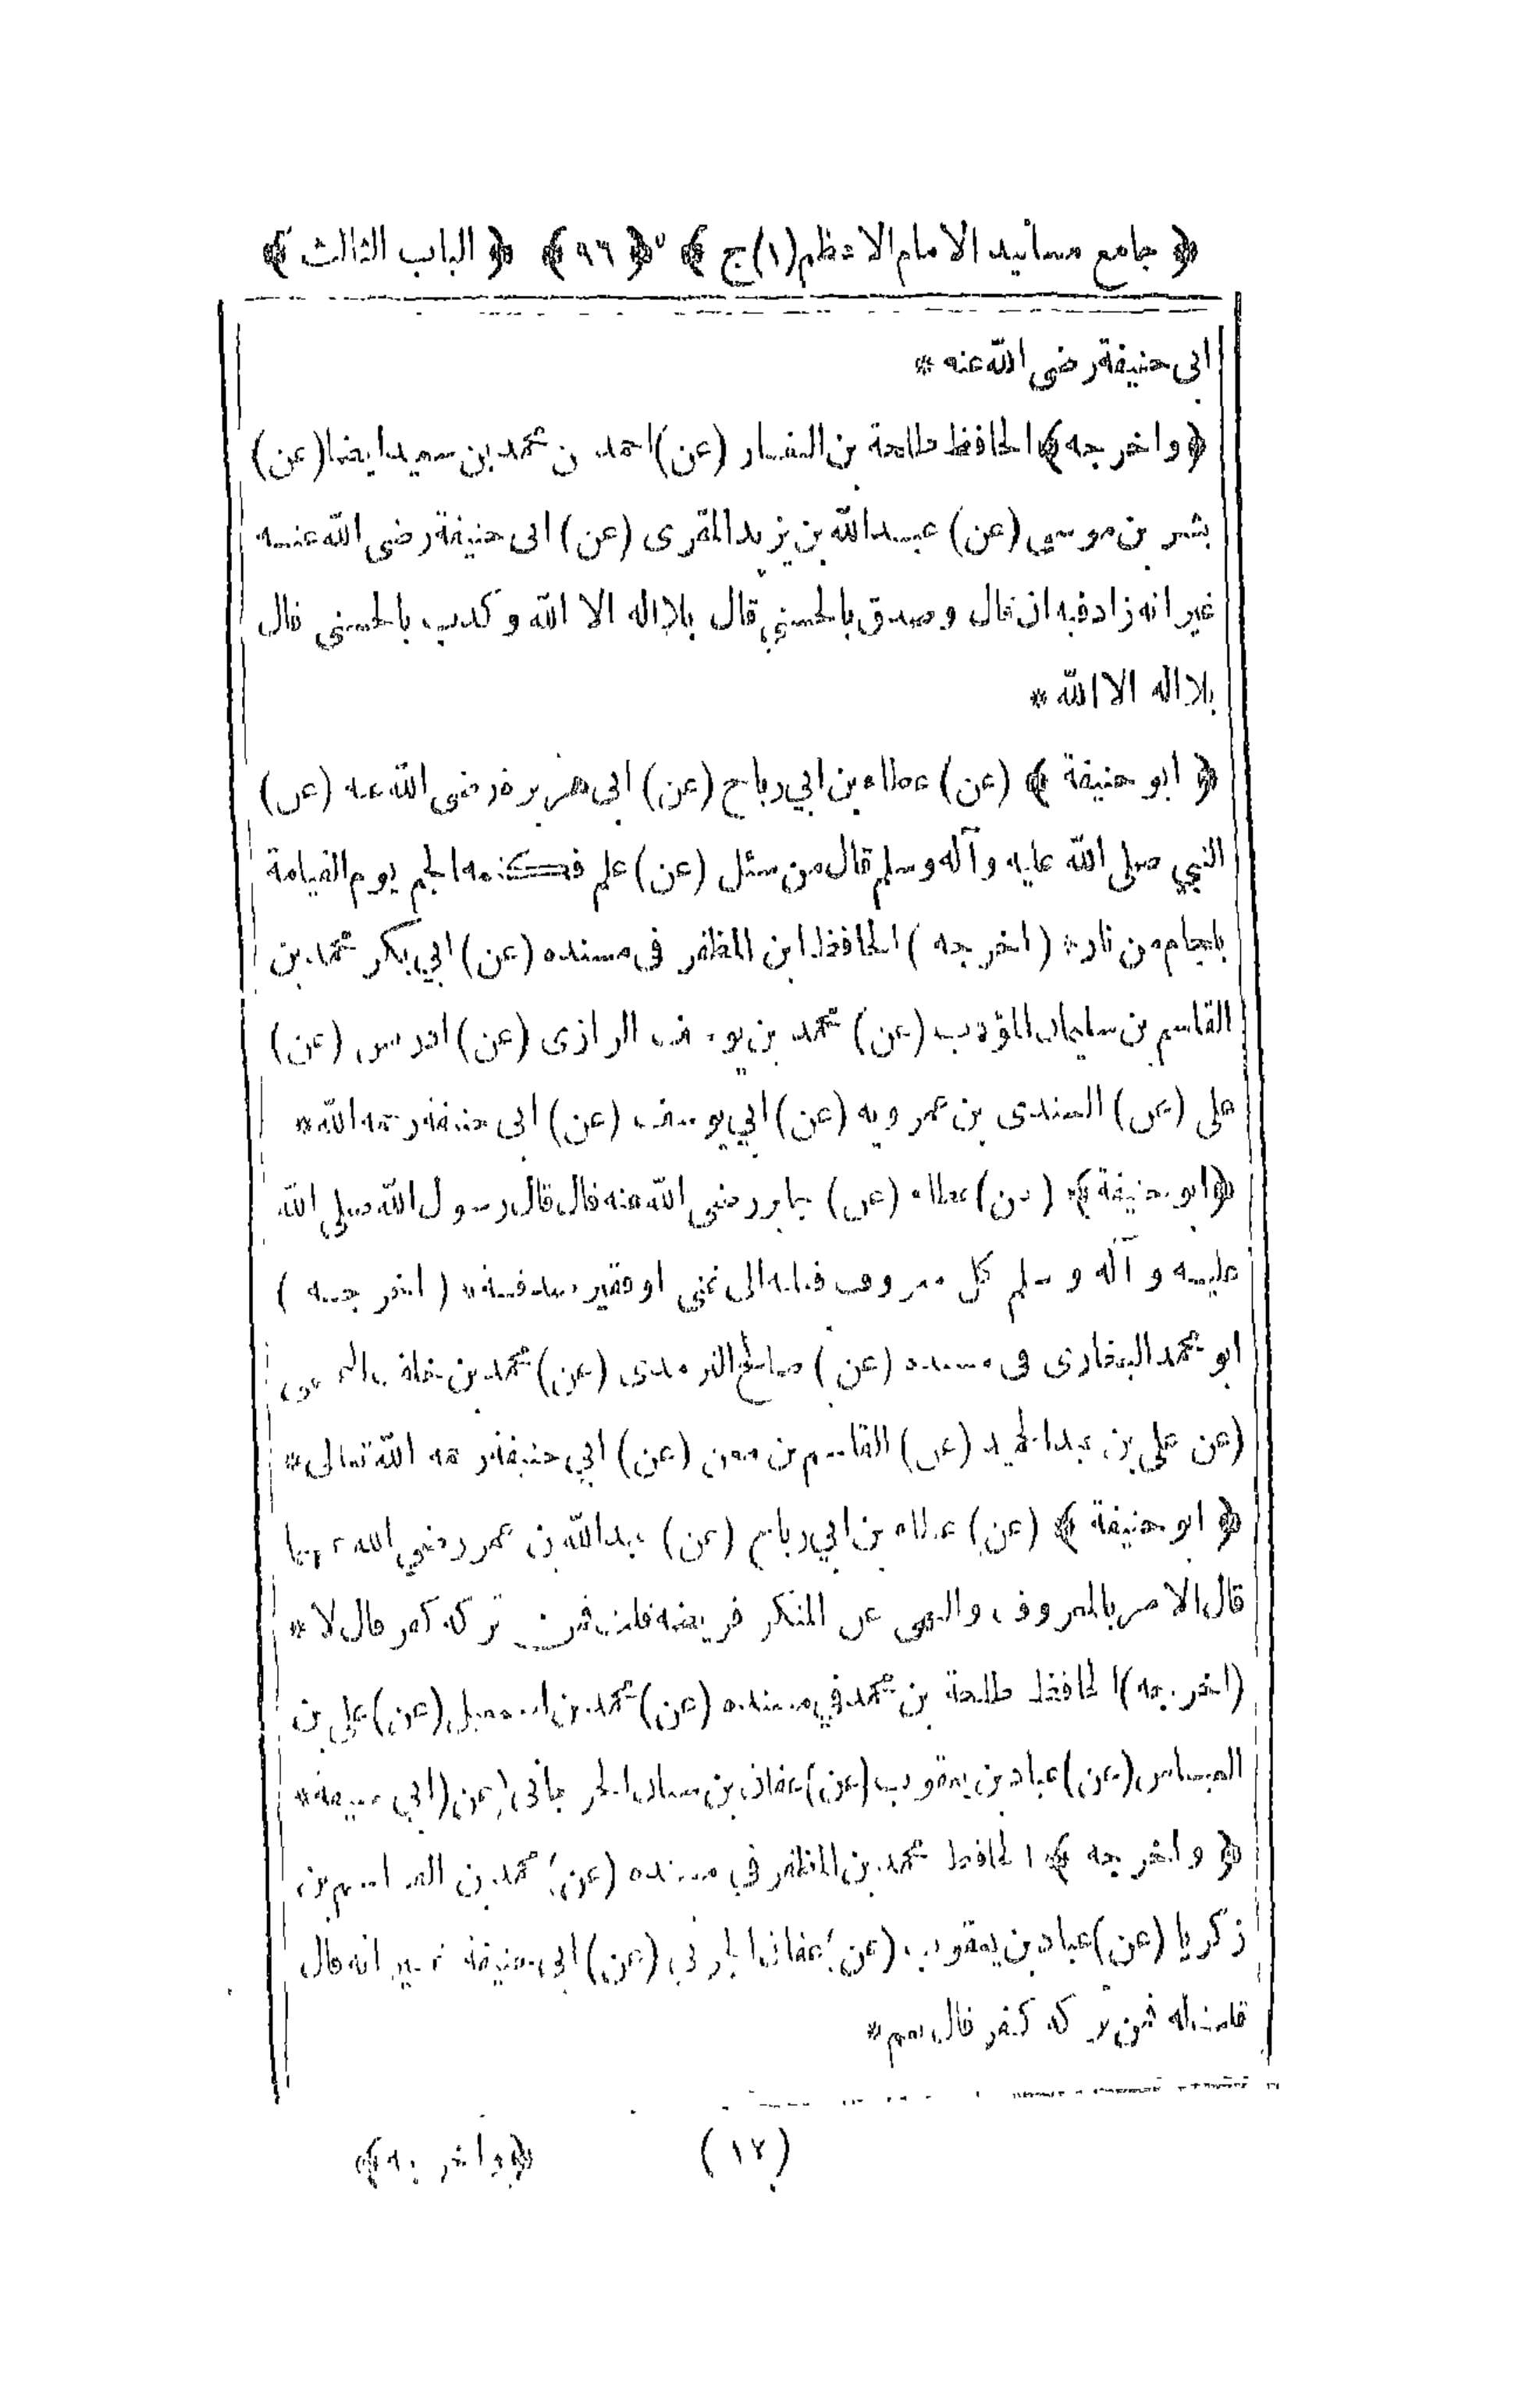 ﴿ جامع مسانيد الامام الاعظم(١)ج ﴾ ﴿ ٩٦ ﴾ ﴿ الباب الثالث ﴾
ابى حنيفة رضى الله عنه *
﴿ واخرجه ﴾ الحافظ طلحة بن (عن) احمد بن محمد بن سعيد ايضا (عن)
بشر بن موسى (عن) عبدالله بن يزيد المقرى (عن) ابى حنيفة رضى الله عنه
غير انه زاد فيه ان قال وصدق بالحسنى قال بلا اله الا الله وكذب بالحسنى قال
بلا اله الا الله *
﴿ ابو حنيفة ﴾ (عن) عطاء بن ابي رباح (عن) ابى هريرة رضى الله عنه (عن)
النبي صلى الله عليه وآله وسلم قال من سئل (عن) علم فكتمه الجم يوم القيامة
بلجام من نار * (اخرجه) الحافظ ابن المظفر فى مسنده (عن) ابي بكر محمد بن
القاسم بن سليمان المؤدب (عن) محمد بن يوسف الرازى (عن) ادريس (عن)
على (عن) السندى بن عمرويه (عن) ابي يوسف (عن) ابى حنيفة رحمه الله *
﴿ ابو حنيفة ﴾ (عن) عطاء (عن) جابر رضى الله عنه قال قال رسول الله صلى الله
عليه وآله وسلم كل معروف فعلته الى غنى او فقير صدقة * (اخرجه)
ابو محمد البخارى فى مسنده (عن) صالح الترمذى (عن) محمد بن خلف
(عن على بن عبد الحميد (عن) القاسم بن معن (عن) ابي حنيفة رحمه الله تعالى *
﴿ ابو حنيفة ﴾ (عن) عطاء بن ابي رباح (عن) عبدالله بن عمر رضي الله عنهما
قال الامر بالمعروف والنهى عن المنكر فريضة قلت فمن تركه كفر قال لا *
(اخرجه) الحافظ طلحة بن محمد في مسنده (عن) محمد بن اسمعيل (عن) على بن
العباس (عن) عباد بن يعقوب (عن) عفان بن سيار الجرجانى (عن) ابي حنيفة *
﴿ واخرجه ﴾ الحافظ محمد بن المظفر في مسنده (عن) محمد بن القاسم بن
زكريا (عن) عباد بن يعقوب (عن) عفان (عن) ابى حنيفة غير انه قال
قلت له فمن تركه كفر قال نعم *
(١٢) ﴿ واخرجه ﴾